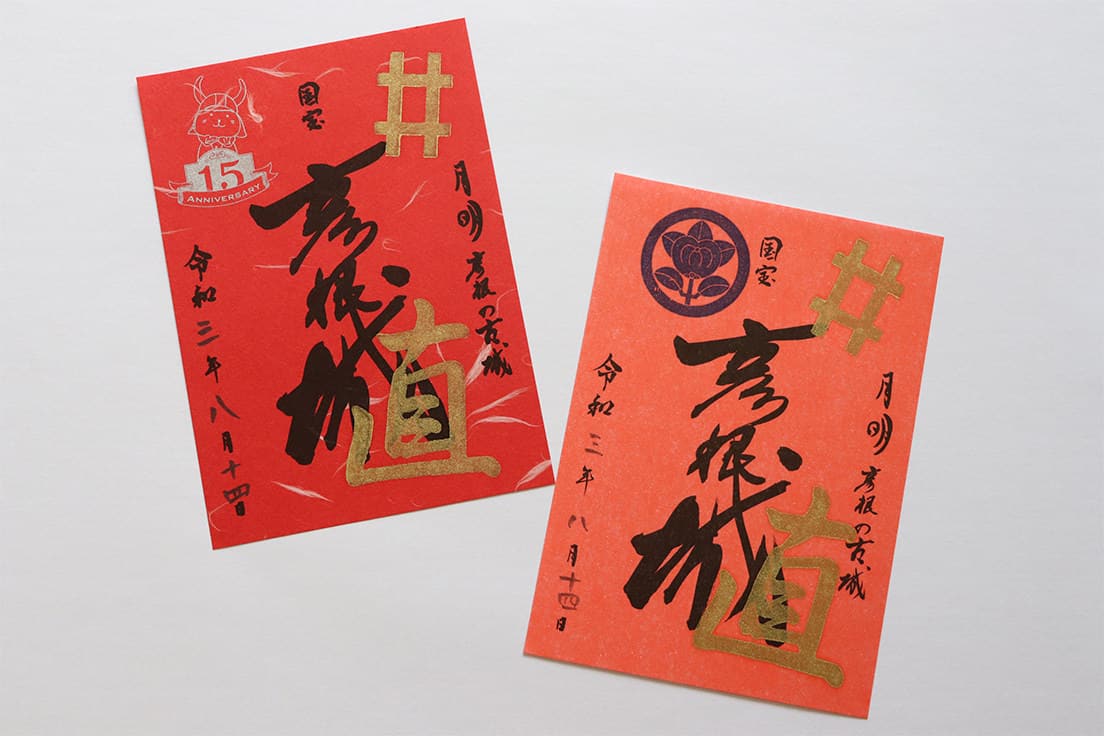 井
月明 彦根の古城
国宝
彦根城
直
15
ANNIVERSARY
令和三年八月十四日
井
月明 彦根の古城
国宝
彦根城
直
令和三年八月十四日